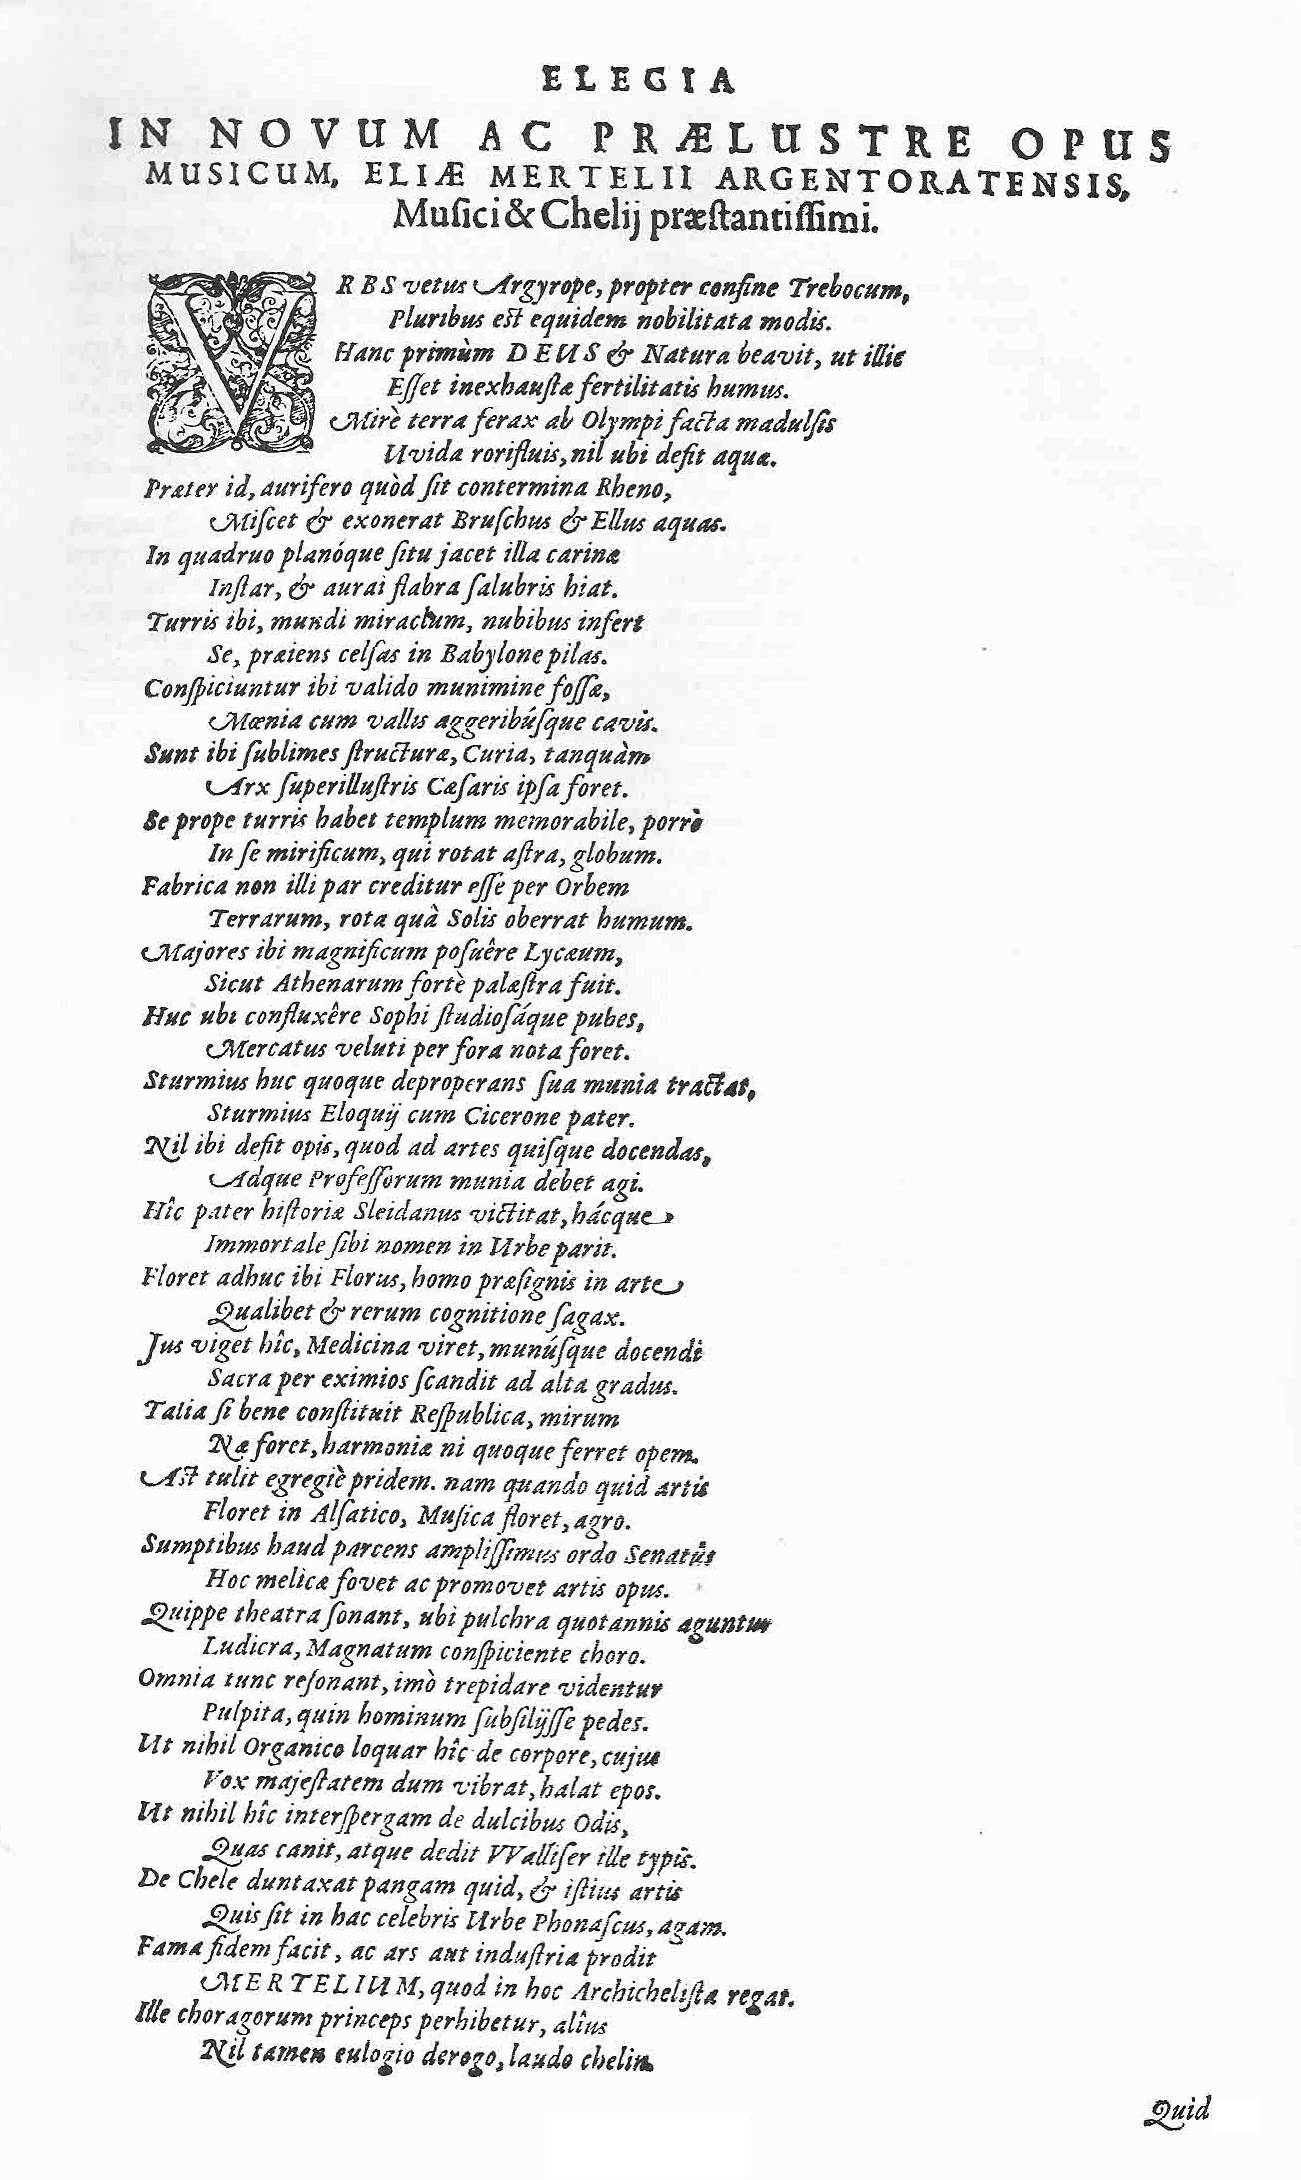 ELEGIA
IN NOVUM AC PRÆLUSTRE OPUS
MUSICUM, ELIÆ MERTELII ARGENTORATENSIS,
Muſici & Chelij præſtantiſſimi.
VRBS vetus Argyrope, propter confine Trebocum,
Pluribus est equidem nobilitata modis.
Hanc primùm DEUS & Natura beavit, ut illic
Eſſet inexhauſtæ fertilitatis humus.
Mirè terra ferax ab Olympi facta madulſis
Uvida rorifluis, nil ubi defit aquæ.
Præter id, aurifero quòd ſit contermina Rheno,
Miſcet & exonerat Bruſchus & Ellus aquas.
In quadruo planóque ſitu jacet illa carinæ
Inſtar, & aurai flabra ſalubris hiat.
Turris ibi, mundi miraclum, nubibus infert
Se, præiens celſas in Babylone pilas.
Conſpiciuntur ibi valido munimine foſſæ,
Mœnia cum vallis aggeribúſque cavis.
Sunt ibi ſublimes ſtructuræ, Curia, tanquàm
Arx ſuperilluſtris Cæſaris ipſa foret.
Se prope turris habet templum memorabile, porrò
In ſe mirificum, qui rotat aſtra, globum.
Fabrica non illi par creditur eſſe per Orbem
Terrarum, rota quà Solis oberrat humum.
Majores ibi magnificum poſuêre Lycæum,
Sicut Athenarum fortè palæſtra fuit.
Huc ubi confluxêre Sophi ſtudioſáque pubes,
Mercatus veluti per fora nota foret.
Sturmius huc quoque deproperans ſua munia tractat,
Sturmius Eloquij cum Cicerone pater.
Nil ibi defit opis, quod ad artes quiſque docendas,
Adque Profeſſorum munia debet agi.
Hîc pater hiſtoriæ Sleidanus victitat, hácque
Immortale ſibi nomen in Urbe parit.
Floret adhuc ibi Florus, homo præſignis in arte
Qualibet & rerum cognitione ſagax.
Jus viget hîc, Medicina viret, munúſque docendi
Sacra per eximios ſcandit ad alta gradus.
Talia ſi bene conſtituit Reſpublica, mirum
Næ foret, harmoniæ ni quoque ferret opem.
Ast tulit egregiè pridem. nam quando quid artis
Floret in Alſatico, Muſica floret, agro.
Sumptibus haud parcens ampliſſimus ordo Senatûs
Hoc melicæ fovet ac promovet artis opus.
Quippe theatra ſonant, ubi pulchra quotannis aguntur
Ludicra, Magnatum conſpiciente choro.
Omnia tunc reſonant, imò trepidare videntur
Pulpita, quin hominum ſubſilijſſe pedes.
Ut nihil Organico loquar hîc de corpore, cujus
Vox majeſtatem dum vibrat, halat epos.
Ut nihil hîc interſpergam de dulcibus Odis,
Quas canit, atque dedit VValliſer ille typîs.
De Chele duntaxat pangam quid, & iſtius artis
Quis ſit in hac celebris Urbe Phonaſcus, agam.
Fama fidem facit, ac ars aut induſtria prodit
MERTELIUM, quod in hoc Archicheliſta regat.
Ille choragorum princeps perhibetur, alîus
Nil tamen eulogio derogo, laudo chelin.
Quid